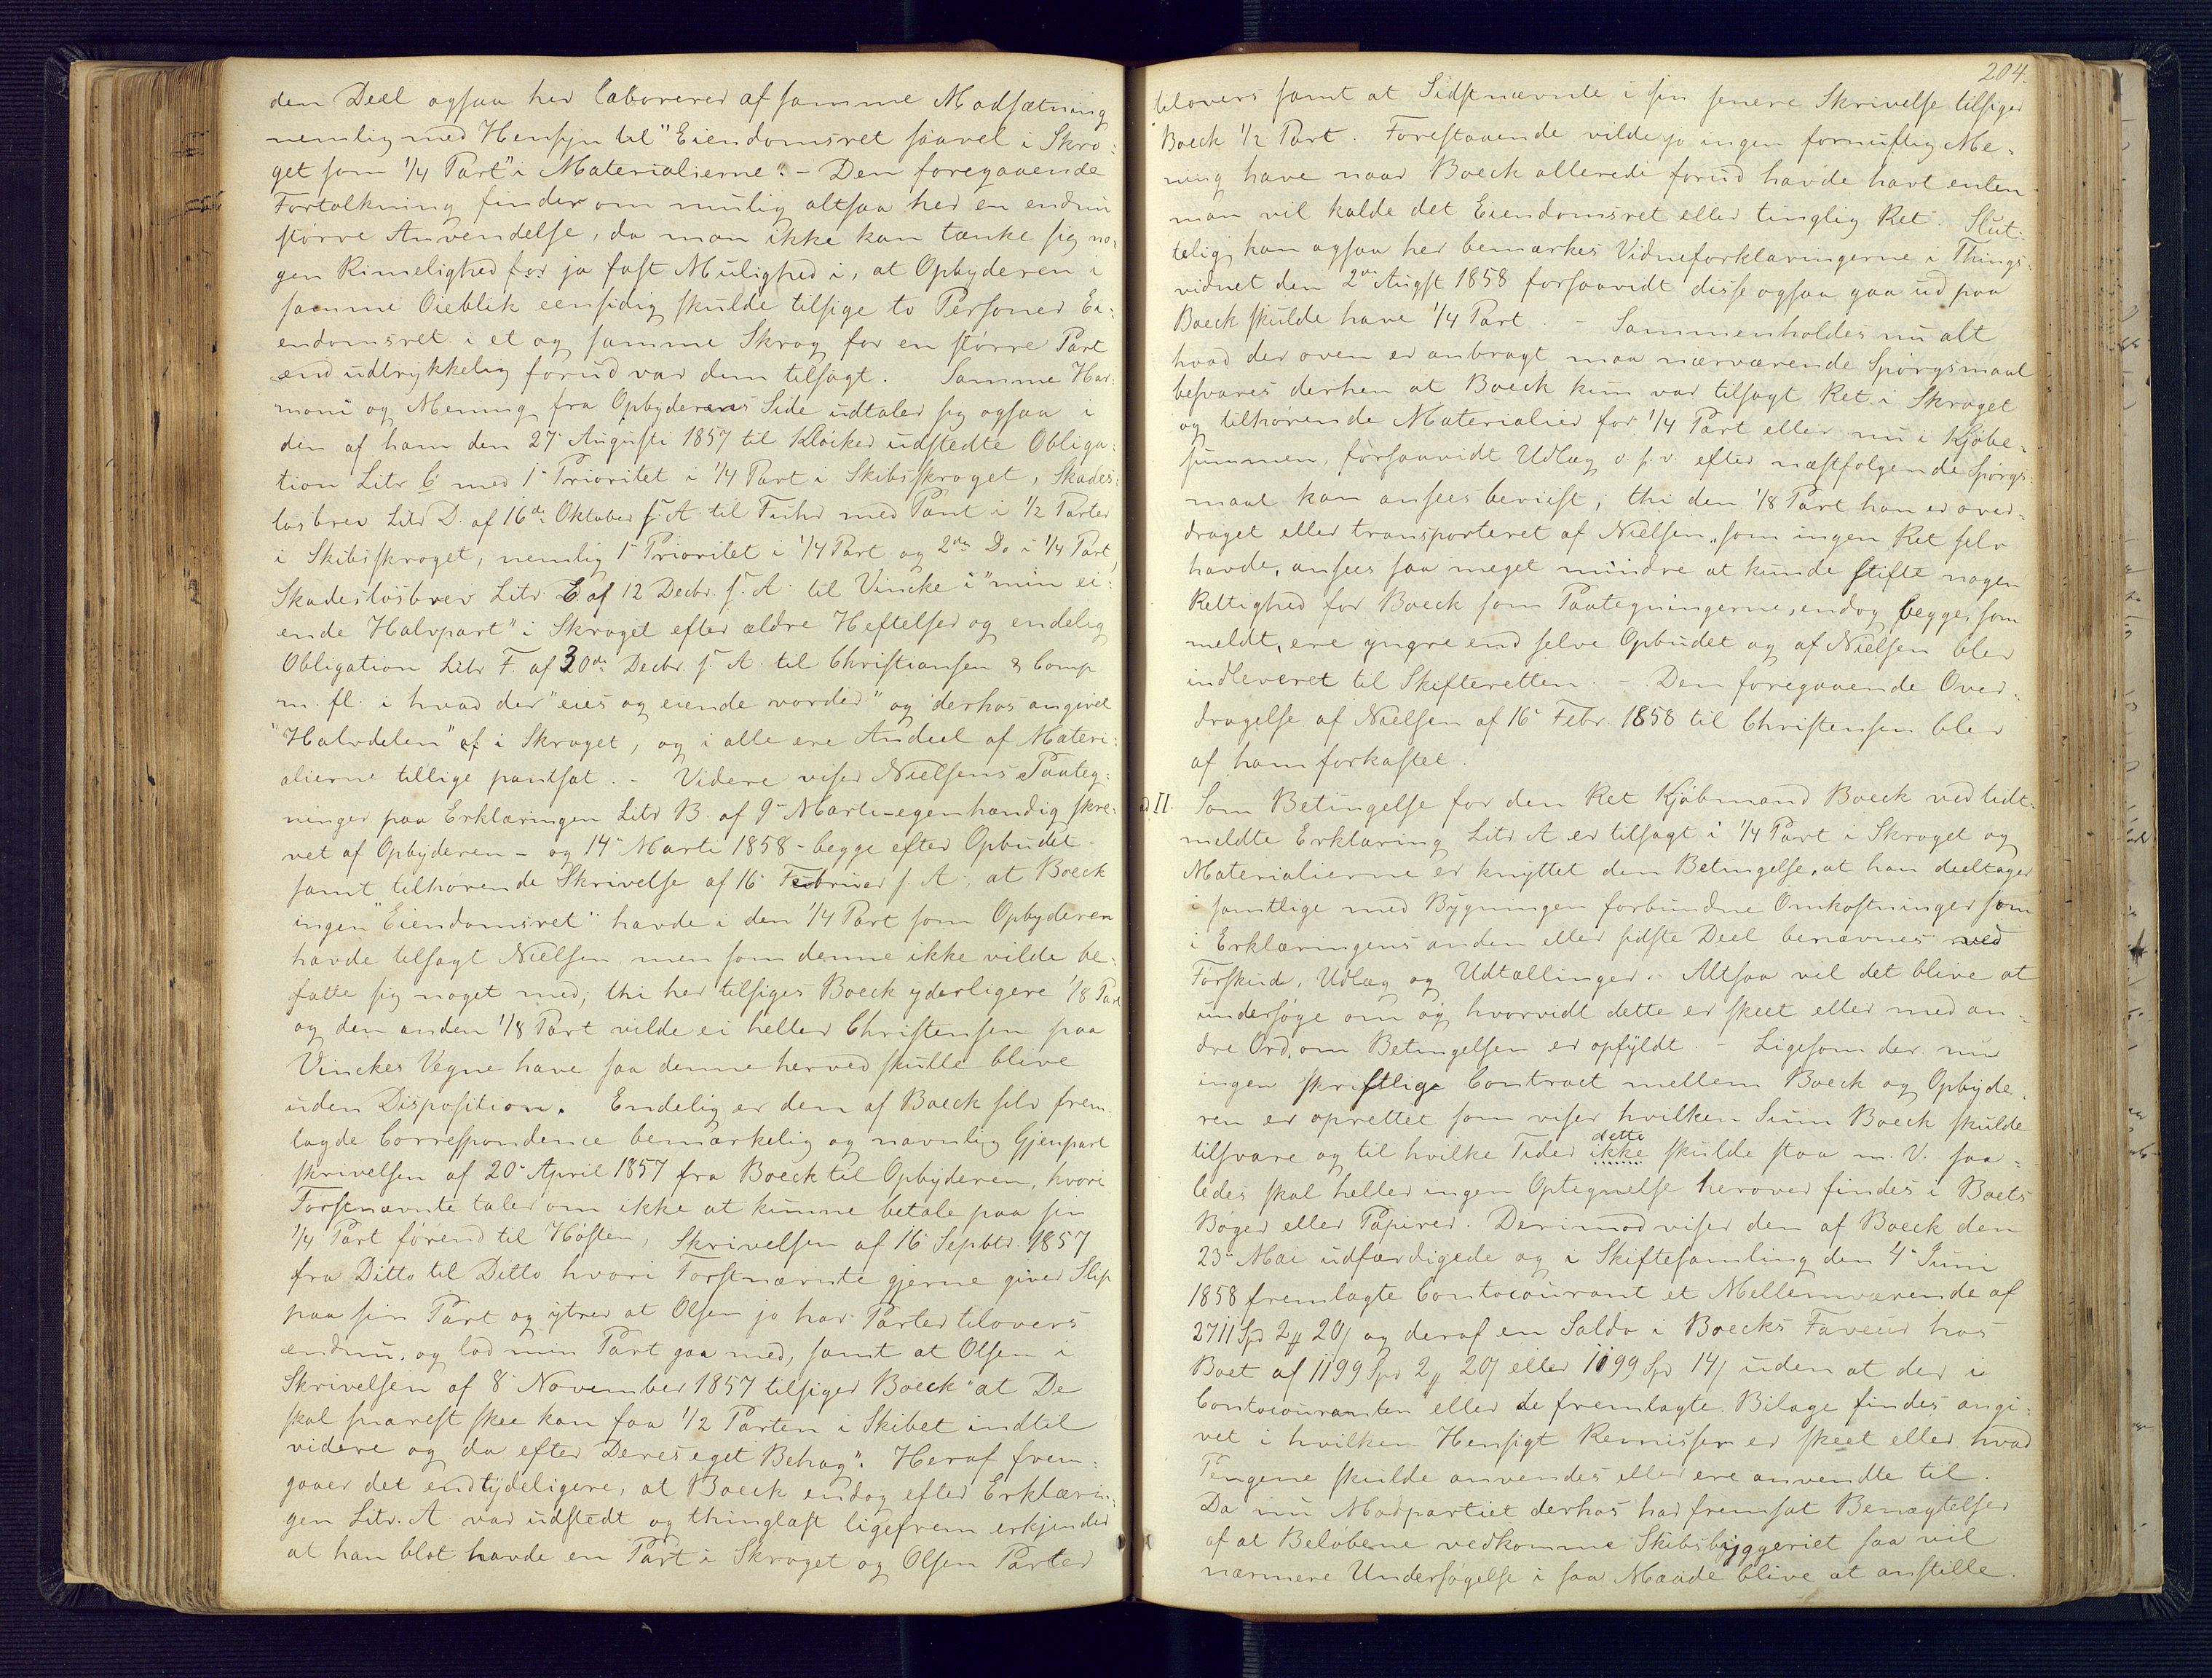 den Deel ogsaa her laborerer af samme Modsætning
nemlig med Hensyn til "Eiendomsret saavel i Skro¬
get som 1/4 Part" i Materialierne". - Den foregaaende
Fortolkning finder om mulig altsaa her en endnu
større Anvendelse, da man ikke kan tænke sig no¬
gen Rimelighed for ja fast Mulighed i, at Opbyderen i
samme Øieblik eensidig skulde tilsige to Personer Ei¬
endomsret i et og samme Skrog for en større Part
end udtrykkelig forud var dem tilsagt. Samme Har¬
moni og Mening fra Opbyderens Side udtaler sig ogsaa i
den af ham den 27. Augusti 1857 til Kløcker udstedte Obliga¬
tion Litr C med 1ste Prioritet i 1/4 Part i Skibsskroget, Skades¬
løsbrev Litr D. af 16de Oktober s. A. til Fuhr med Pant i 1/2 Parter
i Skibsskroget, nemlig 1ste Prioritet i 1/4 Part og 2den Do i 1/4 Part,
Skadesløsbrev Litr. E af 12 Decbr. s. A. til Vincke i "min ei¬
ende Halvpart" i Skroget efter ældre Heftelser og endelig
Obligation Litr F. af 30de Decbr. s. A. til Christiansen & Comp
m. fl. i hvad der "eies og eiende vorder" og derhos angivet
"Halvdelen" af i Skroget, og i alle ere Andeel af Materi¬
alierne tillige pantsat. - Videre viser Nielsens Paateg¬
ninger paa Erklæringen Litr B. af 9de Marti - egenhændig skre¬
vet af Opbyderen - og 14de Marti 1858 - begge efter Opbudet -
samt tilhørende Skrivelse af 16 Februar s. A., at Boeck
ingen "Eiendomsret" havde i den 1/4 Part som Opbyderen
havde tilsagt Nielsen, men som denne ikke vilde be¬
fatte sig noget med; thi her tilsiges Boeck yderligere 1/8 Part
og den anden 1/8 Part vilde ei heller Christensen paa
Vinckes Vegne have saa denne herved skulle blive
uden Disposition. Endelig er den af Boeck selv frem¬
lagde Correspondence bemærkelig og navnlig Gjenpart
skrivelsen af 20de April 1857 fra Boeck til Opbyderen, hvori
Førstnævnte taler om ikke at kunne betale paa sin
1/4 Part førend til Høsten, Skrivelsen af 16 Septbr. 1857
fra Ditto til Ditto hvori Førstnævnte gjerne giver Slip
paa sin Part og ytrer at Olsen jo har Parter tilovers
endnu, og lad min Part gaa med, samt at Olsen i
Skrivelsen af 8de November 1857 tilsiger Boeck "at De
skal snarest skee kan faa 1/2 Parten i Skibet indtil
videre og da efter Deres eget Behag". Heraf frem¬
gaaer det endtydeligere, at Boeck endog efter Erklærin¬
gen Litr. A. var udstedt og thinglæst ligefrem erkjender
at han blot havde en Part i Skroget og Olsen Parter
204.
tilovers samt at Sidstnævnte i sin senere Skrivelse tilsiger
Boeck 1/2 Part. Forestaaende vilde jo ingen fornuftig Me¬
ning have naar Boeck allerede forud havde havt enten
man vil kalde det Eiendomsret eller tinglig Ret. Slut¬
telig kan ogsaa her bemærkes Vidneforklaringerne i Things¬
vidnet den 2den Augst 1858 forsaavidt disse ogsaa gaa ud paa
Boeck skulde have 1/4 Part. - Sammenholdes nu alt
hvad der oven er anbragt maa nærværende Spørgsmaal
besvares derhen at Boeck kun var tilsagt Ret i Skroget
og tilhørende Materialier for 1/4 Part eller nu i Kjøbe¬
summen, forsaavidt Udlæg o. s. v. efter næstfølgende Spørgs¬
maal kan ansees beviist; thi den 1/8 Part han er over¬
draget eller transporteret af Nielsen, som ingen Ret selv
havde, ansees saa meget mindre at kunde stifte nogen
Rettighed for Boeck som Paategningerne, endog begge, som
meldt, ere yngre end selve Opbudet og af Nielsen blev
indleveret til Skifteretten. - Den foregaaende Over¬
dragelse af Nielsen af 16de Febr. 1858 til Christensen blev
af ham forkastet.
ad II. Som Betingelse for den Ret Kjøbmand Boeck ved tidt¬
meldte Erklæring Litr A er tilsagt i 1/4 Part i Skroget og
Materialierne er knyttet den Betingelse, at han deeltager
i samtlige med Bygningen forbundne Omkostninger som
i Erklæringens anden eller sidste Deel benævnes ved
Forskud, Udlæg og Udtællinger. Altsaa vil det blive at
undersøge om og hvorvidt dette er skeet eller med an¬
dre Ord, om Betingelsen er opfyldt. - Ligesom der nu
ingen skriftlige Contract mellem Boeck og Opbyde¬
ren er oprettet som viser hvilken Sum Boeck skulde
tilsvare og til hvilke Tider ikke dette skulde staa m. V. saa¬
ledes skal heller ingen Optegnelse herover findes i Boets
Bøger eller Papirer. Derimod viser den af Boeck den
23de Mai udfærdigede og i Skiftesamling den 4de Juni
1858 fremlagte Contocourant et Mellemværende af
2711 Spd 2 # 20 ß og deraf en Saldo i Boecks Faveur hos
Boet af 1199 Spd 2 # 20 ß eller 1199 Spd 14 ß uden at der i
Contocouranten eller de fremlagte Bilage findes angi¬
vet i hvilken Hensigt Remissen er skeet eller hvad
Pengene skulde anvendes eller ere anvendte til.
Da nu Modpartiet derhos har fremsat Benægtelser
af at Beløbene vedkomme Skibsbyggeriet saa vil
nærmere Undersøgelse i saa Maade blive at anstille.